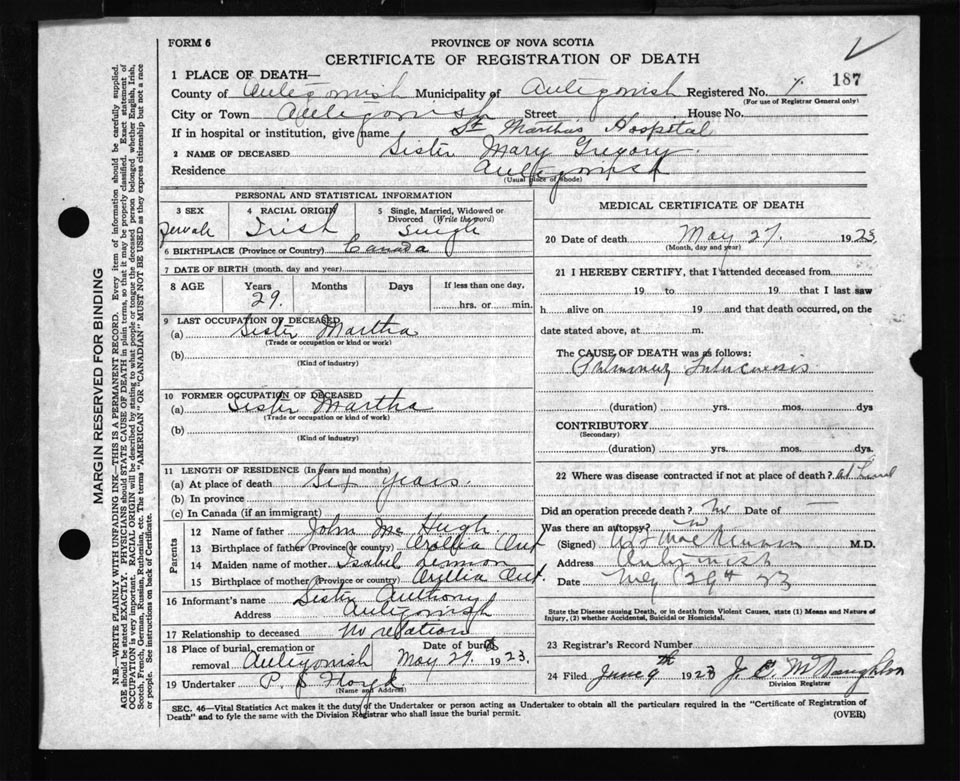 FORM 6
PROVINCE OF NOVA SCOTIA
CERTIFICATE OF REGISTRATION OF DEATH
187
1 PLACE OF DEATH—
County of Antigonish Municipality of Antigonish Registered No.
(For use of Registrar General only)
City or Town Antigonish Street House No.
If in hospital or institution, give name St Martha's Hospital
2 NAME OF DECEASED Sister Mary Gregory
Residence Antigonish
(Usual place of abode)
PERSONAL AND STATISTICAL INFORMATION
3 SEX
Female
4 RACIAL ORIGIN
Irish
5 Single, Married, Widowed or Divorced (Write the word)
Single
6 BIRTHPLACE (Province or Country) Canada
7 DATE OF BIRTH (month, day and year)
8 AGE Years Months Days If less than one day,
29. hrs. or min.
9 LAST OCCUPATION OF DECEASED
(a) Sister Martha
(Trade or occupation or kind or work)
(b)
(Kind of industry)
10 FORMER OCCUPATION OF DECEASED
(a) Sister Martha
(Trade or occupation or kind of work)
(b)
(Kind of industry)
11 LENGTH OF RESIDENCE (In years and months)
(a) At place of death Six years.
(b) In province
(c) In Canada (if an immigrant)
Parents
12 Name of father John Mc Hugh
13 Birthplace of father (Province or country) Orillia Ont
14 Maiden name of mother Isabel
15 Birthplace of mother (Province or country) Orillia Ont.
16 Informant's name Sister Anthony
Address Antigonish
17 Relationship to deceased No relation
18 Place of burial, cremation or removal Antigonish Date of burial May 29, 1923.
19 Undertaker P. S Floyd
(Name and Address)
MEDICAL CERTIFICATE OF DEATH
20 Date of death May 27. 1923
(Month, day and year)
21 I HEREBY CERTIFY, that I attended deceased from
19 to 19 that I last saw
h alive on 19 and that death occurred, on the
date stated above, at m.
The CAUSE OF DEATH was as follows:
Pulmonary Tuberculosis
(duration) yrs. mos. dys
CONTRIBUTORY
(Secondary)
(duration) yrs. mos. dys.
22 Where was disease contracted if not at place of death? at
Did an operation precede death? No Date of —
Was there an autopsy? No
(Signed) MacKinnon M.D.
Address Antigonish
Date May 29th 23
State the Disease causing Death, or in death from Violent Causes, state (1) Means and Nature of Injury, (2) whether Accidental, Suicidal or Homicidal.
23 Registrar's Record Number
24 Filed June 9th 1923 J. C. McNaughton
Division Registrar
SEC. 46—Vital Statistics Act makes it the duty of the Undertaker or person acting as Undertaker to obtain all the particulars required in the "Certificate of Registration of
Death" and to fyle the same with the Division Registrar who shall issue the burial permit.
(OVER)
MARGIN RESERVED FOR BINDING
N.B.—WRITE PLAINLY WITH UNFADING INK—THIS IS A PERMANENT RECORD. Every item of information should be carefully supplied.
AGE should be stated EXACTLY. PHYSICIANS should STATE CAUSE OF DEATH in plain terms, so that it may be properly classified. Exact statement of
OCCUPATION is very important. RACIAL ORIGIN will be described by stating to what people or tongue the deceased person belonged whether English, Irish,
Scotch, French, German, Russian, Ruthenian, etc. The terms "AMERICAN" OR "CANADIAN" MUST NOT BE USED as they express citizenship but not a race
or people. See instructions on back of Certificate.